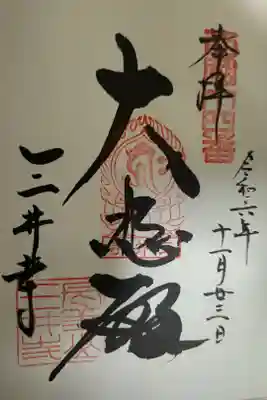 奉拝
令和六年
十一月廿三日
大悲殿
三井寺